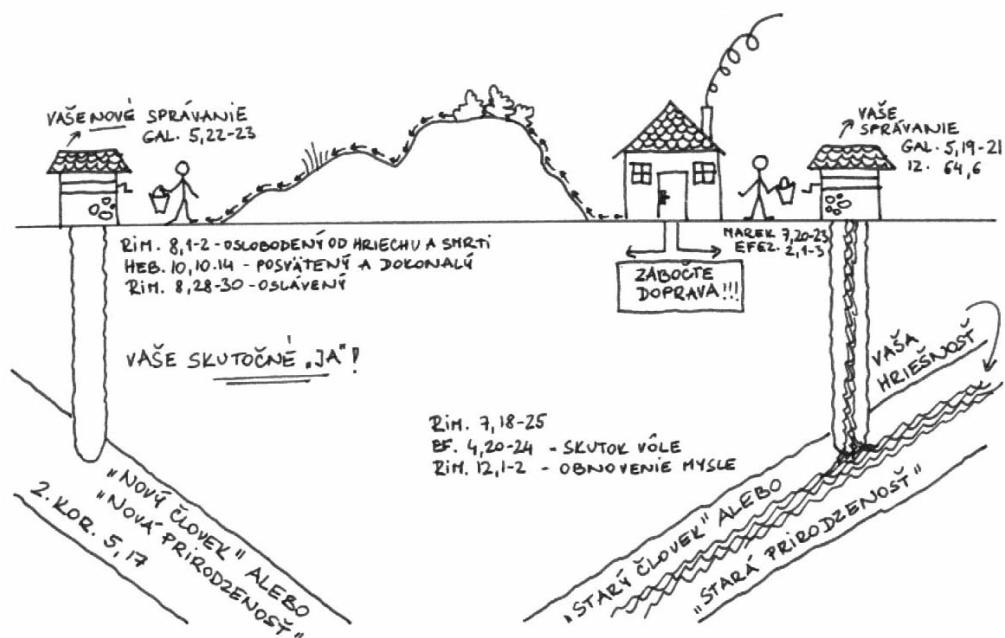 VAŠE NOVÉ SPRÁVANIE
GAL. 5,22-23
VAŠE
SPRÁVANIE
GAL. 5,19-21
IZ. 64,6
RIM. 8,1-2 - OSLOBODENÝ OD HRIECHU A SMRTI
HEB. 10,10.14 - POSVÄTENÝ A DOKONALÝ
RIM. 8,28-30 - OSLÁVENÝ
ZABOČTE
DOPRAVA!!!
MAREK 7,20-23
EFEZ. 2,1-3
VAŠE SKUTOČNÉ „JA"!
VAŠA
HRIEŠNOSŤ
RIM. 7,18-25
EF. 4,20-24 - SKUTOK VÔLE
RIM. 12,1-2 - OBNOVENIE MYSLE
„NOVÝ ČLOVEK" ALEBO
„NOVÁ PRIRODZENOSŤ"
2. KOR. 5,17
„STARÝ ČLOVEK" ALEBO
„STARÁ PRIRODZENOSŤ"